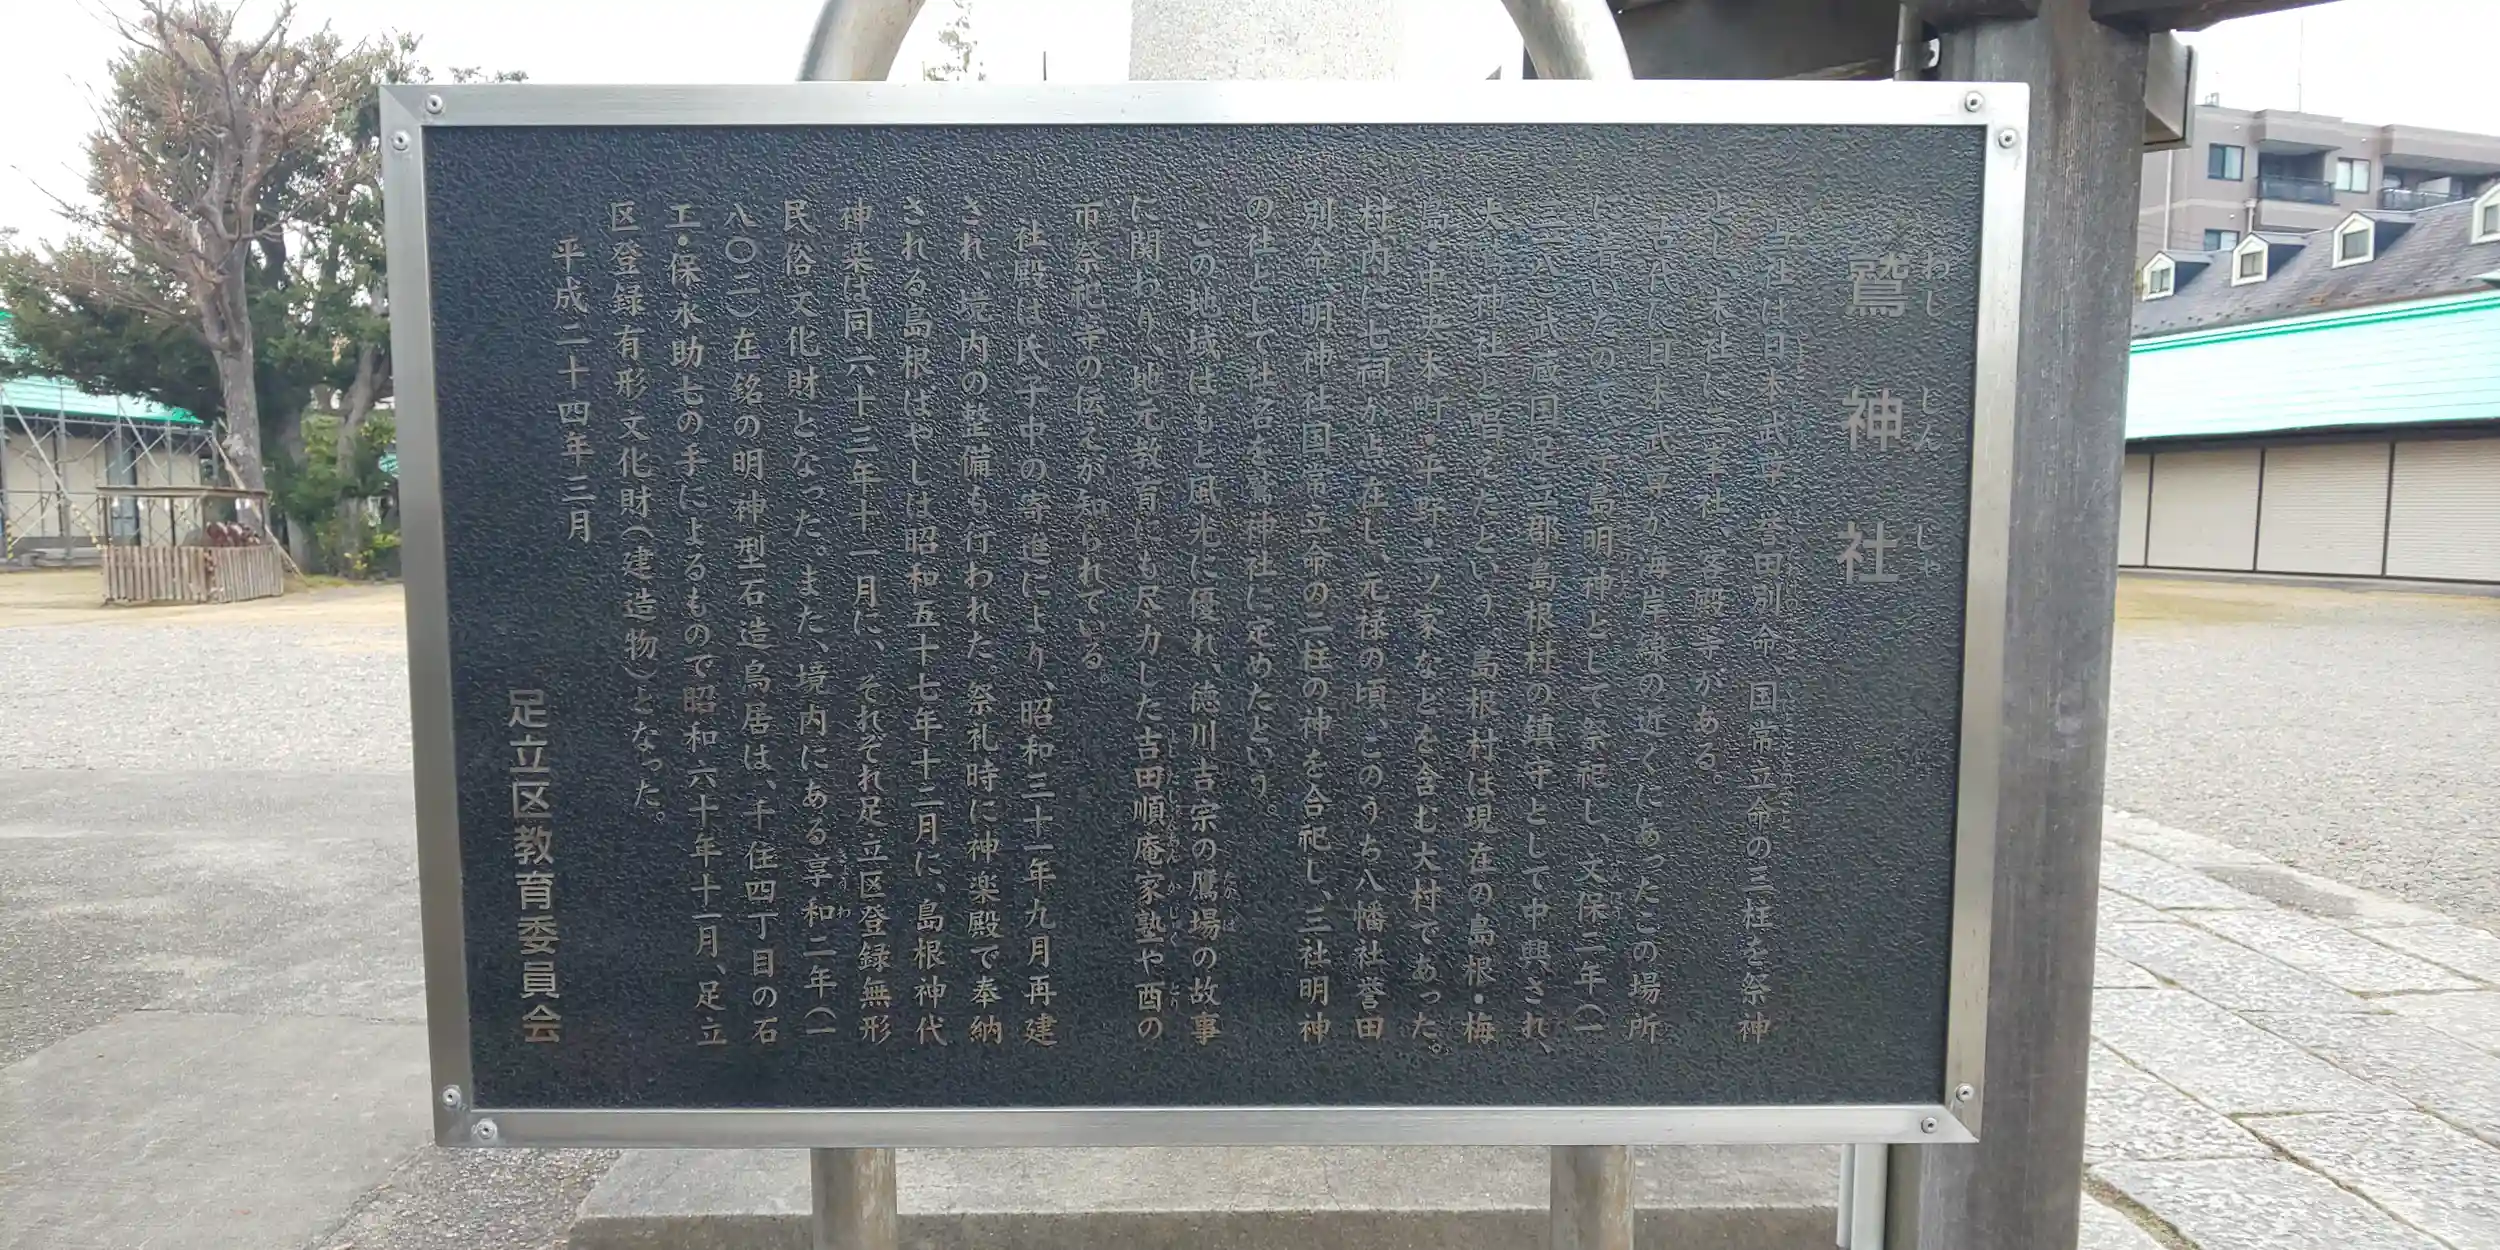 わし しん しゃ
鷲神社
当社は日本武尊、誉田別命、国常立命の三柱を祭神
とし、末社に三峯社、客殿等がある。
古代に日本武尊が海岸線の近くにあったこの場所
に着いたので、島明神として祭祀し、文保二年(一
三一八)武蔵国足立郡島根村の鎮守として中興され、
大鷲神社と唱えたという。島根村は現在の島根・梅
島・中央本町・平野・一ツ家などを含む大村であった。
村内に七祠が点在し、元禄の頃、このうち八幡社誉田
別命、明神社国常立命の二柱の神を合祀し、三社明神
の社として社名を鷲神社に定めたという。
この地域はもと風光に優れ、徳川吉宗の鷹場の故事
に関わり、地元教育にも尽力した吉田順庵家塾や酉の
市祭祀等の伝えが知られている。
社殿は氏子中の寄進により、昭和三十一年九月再建
され、境内の整備も行われた。祭礼時に神楽殿で奉納
される島根ばやしは昭和五十七年十二月に、島根神代
神楽は同六十三年十一月に、それぞれ足立区登録無形
民俗文化財となった。また、境内にある享和二年(一
八〇二)在銘の明神型石造鳥居は、千住四丁目の石
工・保永助七の手によるもので昭和六十年十一月、足立
区登録有形文化財(建造物)となった。
平成二十四年三月
足立区教育委員会